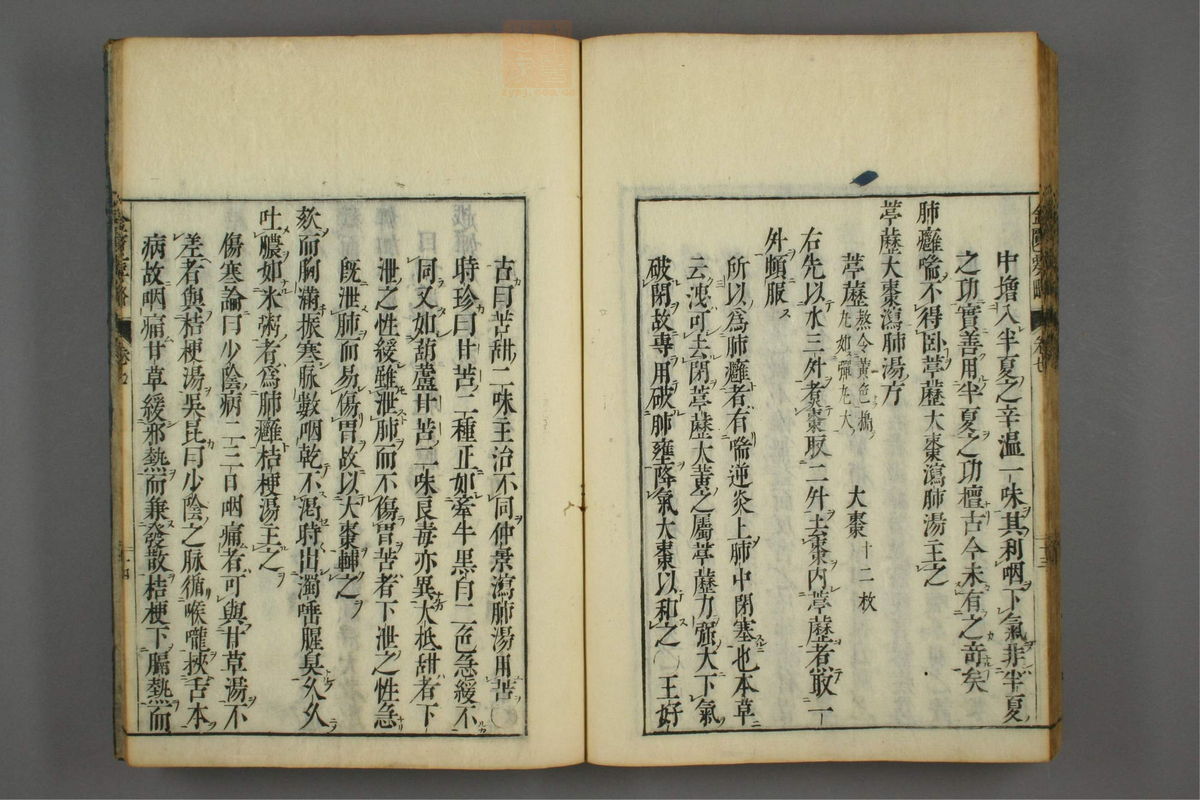 中増入半夏之辛温一味其利咽下氣非半夏
之功實善用半夏之功擅古今未有之奇矣
肺癰喘不得卧葶藶大棗瀉肺湯主之
葶藶大棗瀉肺湯方
葶藶熬令黄色擣丸如彈丸大 大棗十二枚
右先以水三升煮棗取二升去棗内葶藶煮取一
升頓服
所以為肺癰者有喘逆炎上肺中閉塞也本草
云洩可去閉葶藶大黄之屬葶藶力強大下氣
破閉故專用破肺壅降氣大棗以和之〇王好
古曰苦甜二味主治不同仲景瀉肺湯用苦〇
時珍曰甘苦二種正如牽牛黒白二色急緩不
同又如葫蘆甘苦二味良毒亦異大柢甜者下
泄之性緩雖泄肺而不傷胃苦者下泄之性急
既泄肺而易傷胃故以大棗輔之
欬而胸滿振寒脉數咽乾不渇時出濁唾腥臭久久
吐膿如米粥者為肺癰桔梗湯主之
傷寒論曰少陰病二三日咽痛者可與甘草湯不
差者與桔梗湯吳昆曰少陰之脉循喉嚨挾舌本
病故咽痛甘草緩邪熱而兼發散桔梗下膈熱而